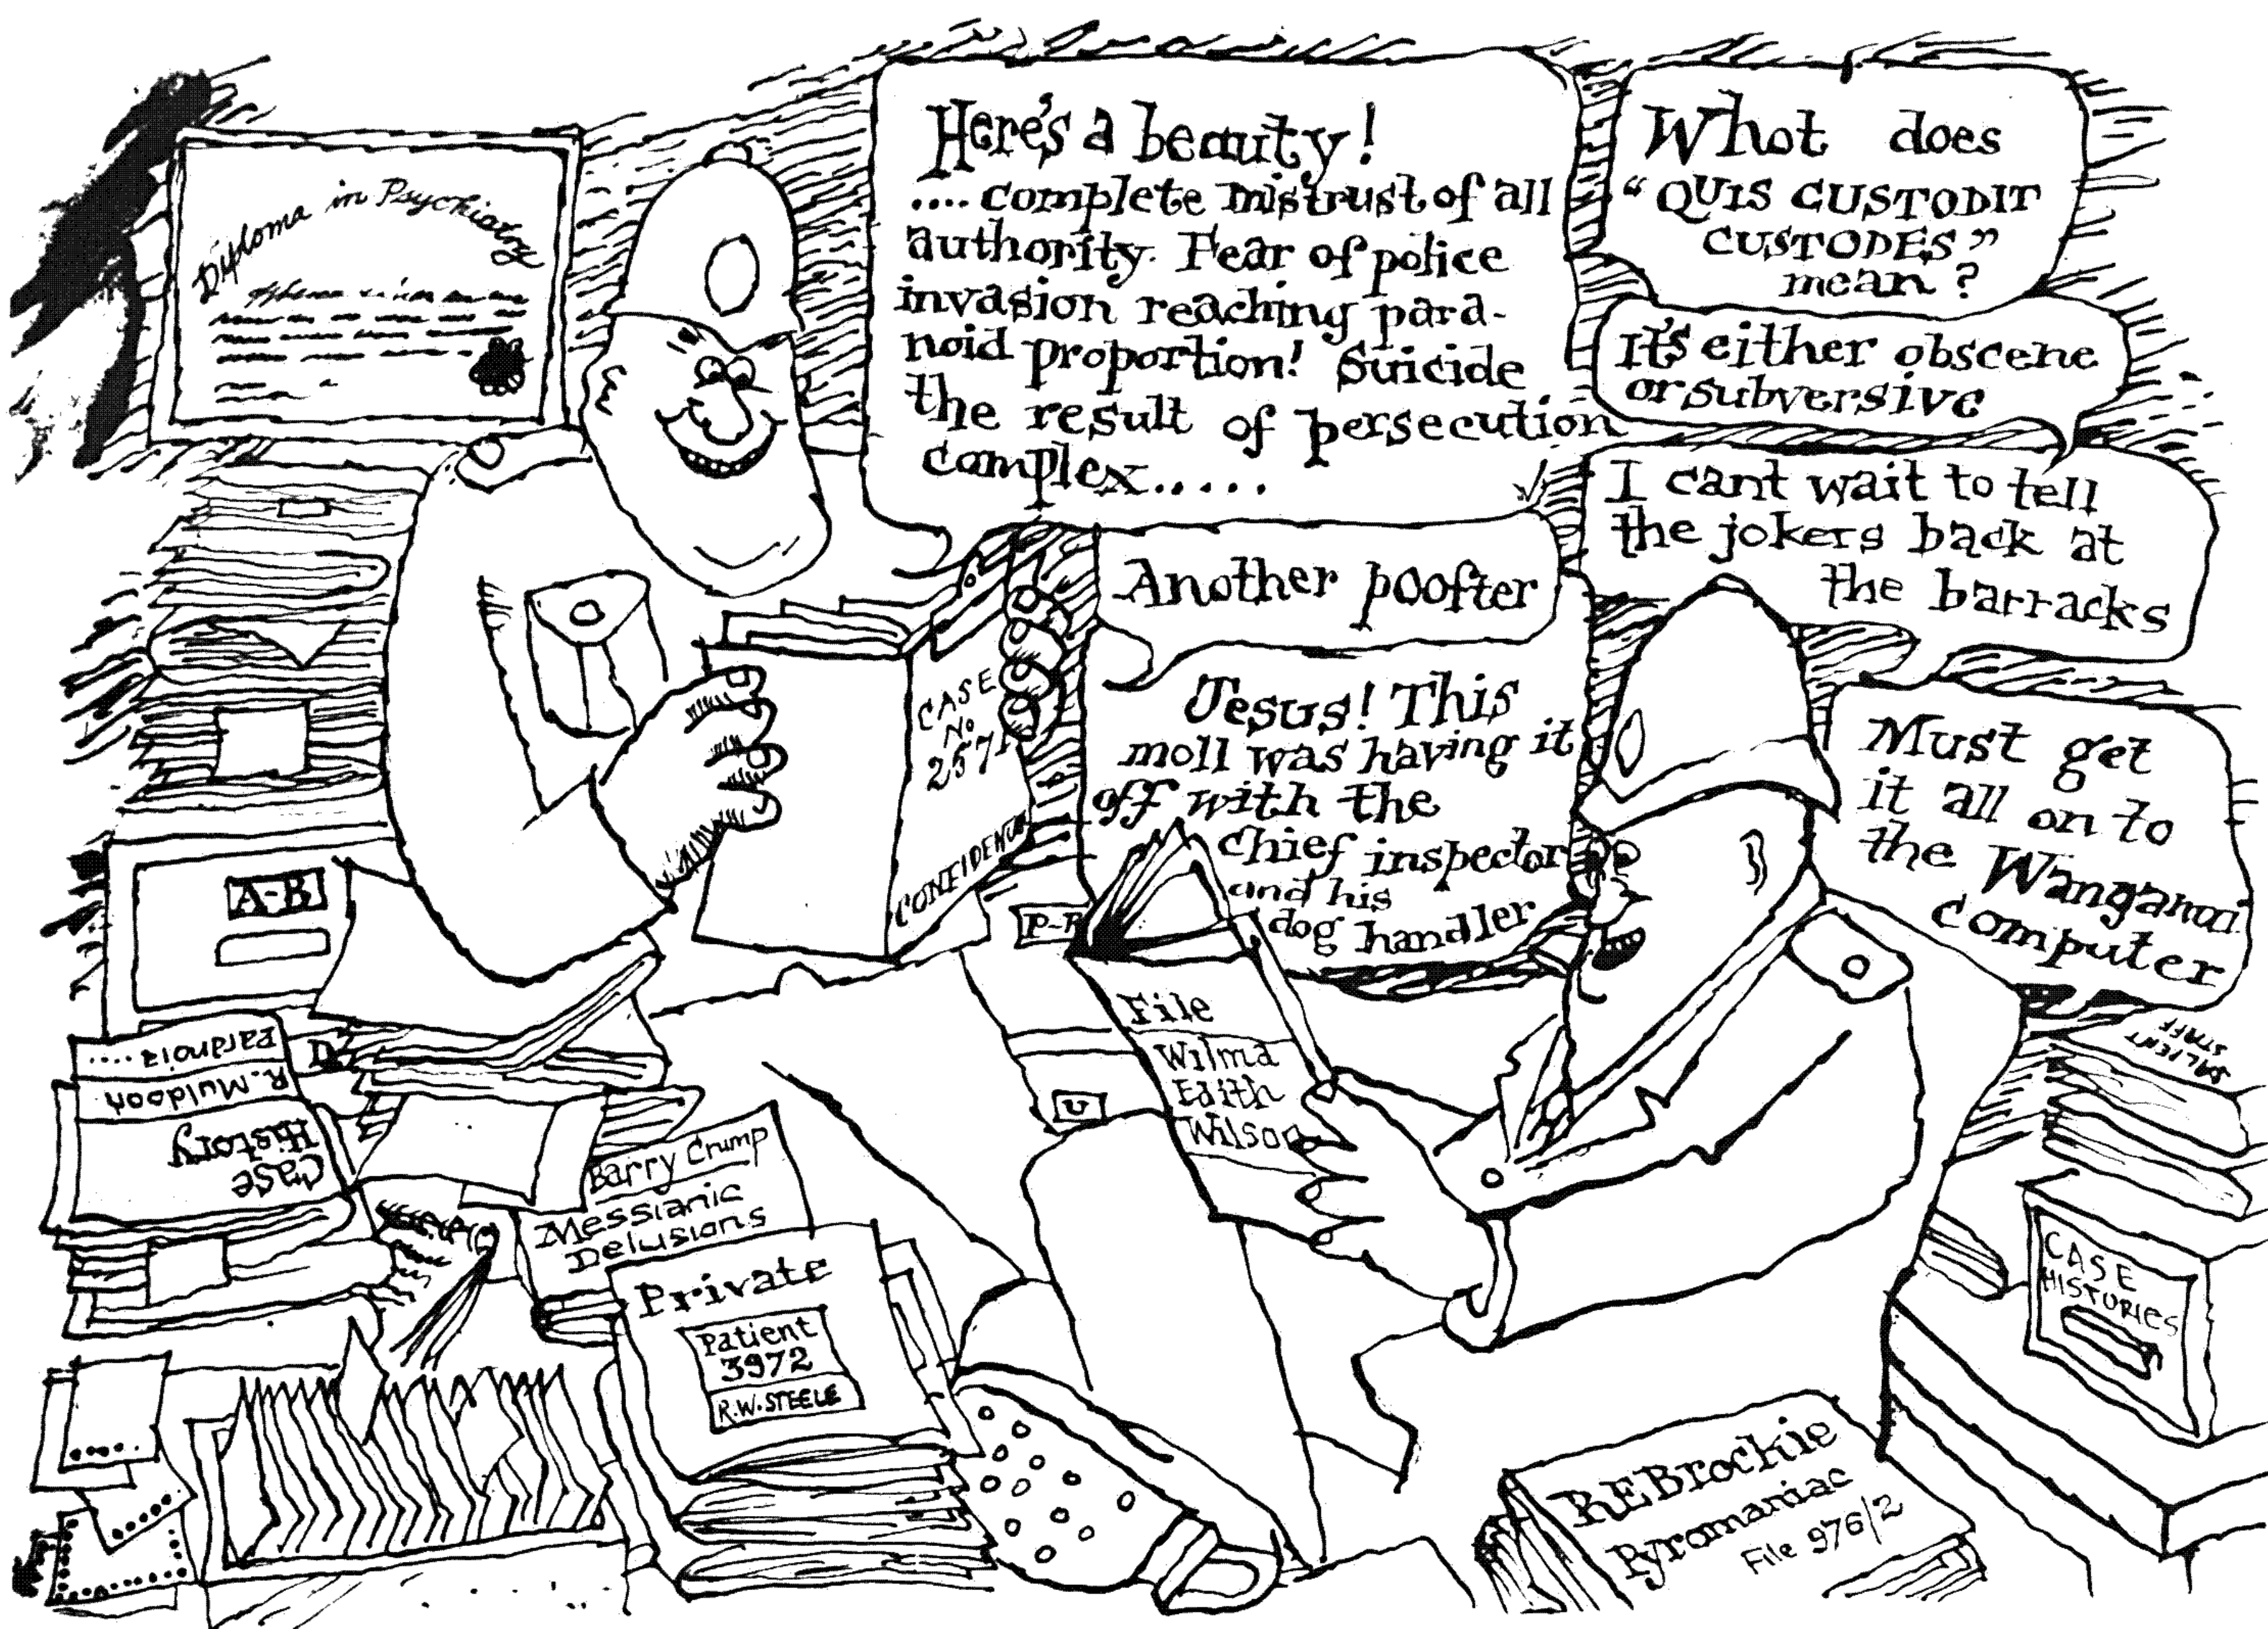 Diploma in Psychiatry
Here's a beauty!
.... complete mistrust of all
authority. Fear of police
invasion reaching para-
noid proportion! Suicide
the result of persecution
complex.....
What does
"QUIS CUSTODIT
CUSTODES"
mean?
It's either obscene
or subversive
I cant wait to tell
the jokers back at
the barracks
Another poofter
Jesus! This
moll was having it
off with the
Chief inspector
and his
dog handler
Must get
it all on to
the Wanganui
computer
CASE
No
2571
A-B
P-R
U
File
Wilma
Edith
Wilson
SALIENT
STAFF
Case
History
R. Muldoon
Paranoia ....
D
Barry Crump
Messianic
Delusions
Private
Patient
3972
R.W. STEELE
CASE
HISTORIES
REBrockie
Pyromaniac
File 976/2